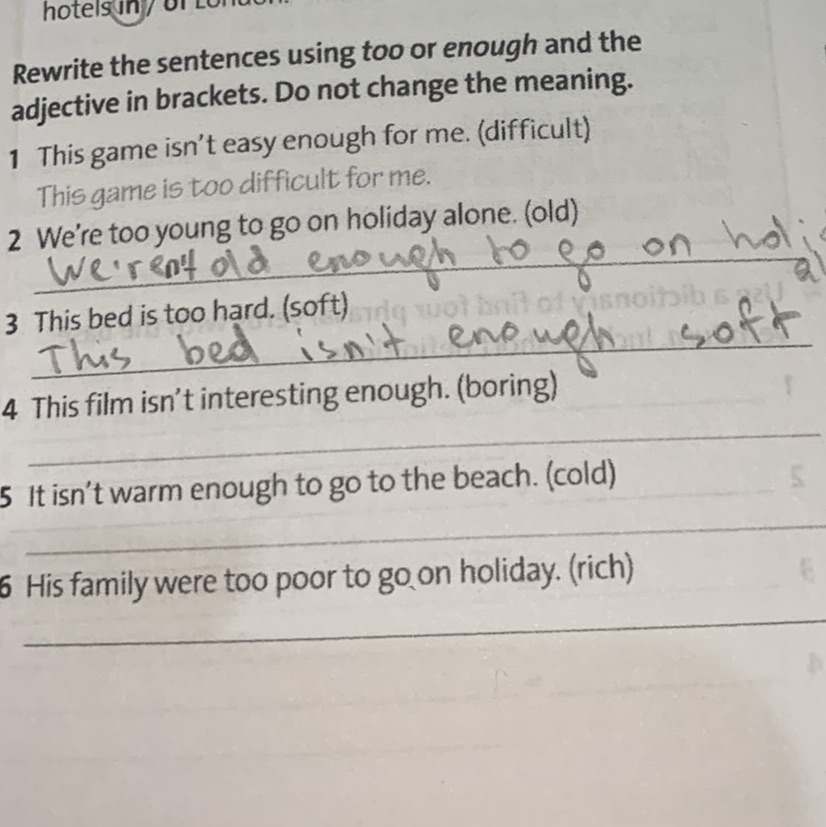 hotels in / of London.
Rewrite the sentences using too or enough and the
adjective in brackets. Do not change the meaning.
1 This game isn't easy enough for me. (difficult)
This game is too difficult for me.
2 We're too young to go on holiday alone. (old)
We'ren't old enough to go on holi
al
3 This bed is too hard. (soft)
This bed isn't enough soft
4 This film isn't interesting enough. (boring)
5 It isn't warm enough to go to the beach. (cold)
6 His family were too poor to go on holiday. (rich)